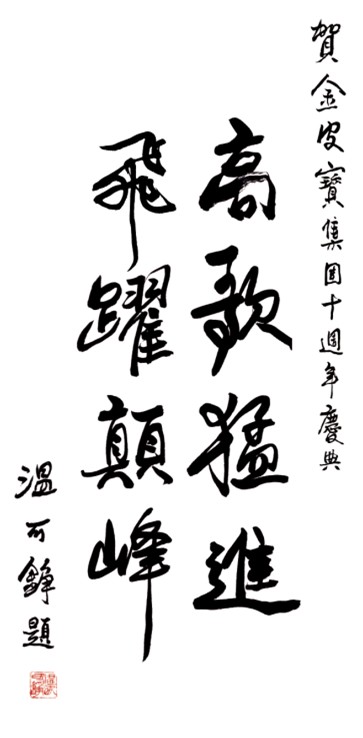 賀金皮寶集团十週年慶典
高歌猛進
飛躍顛峰
溫可錚題